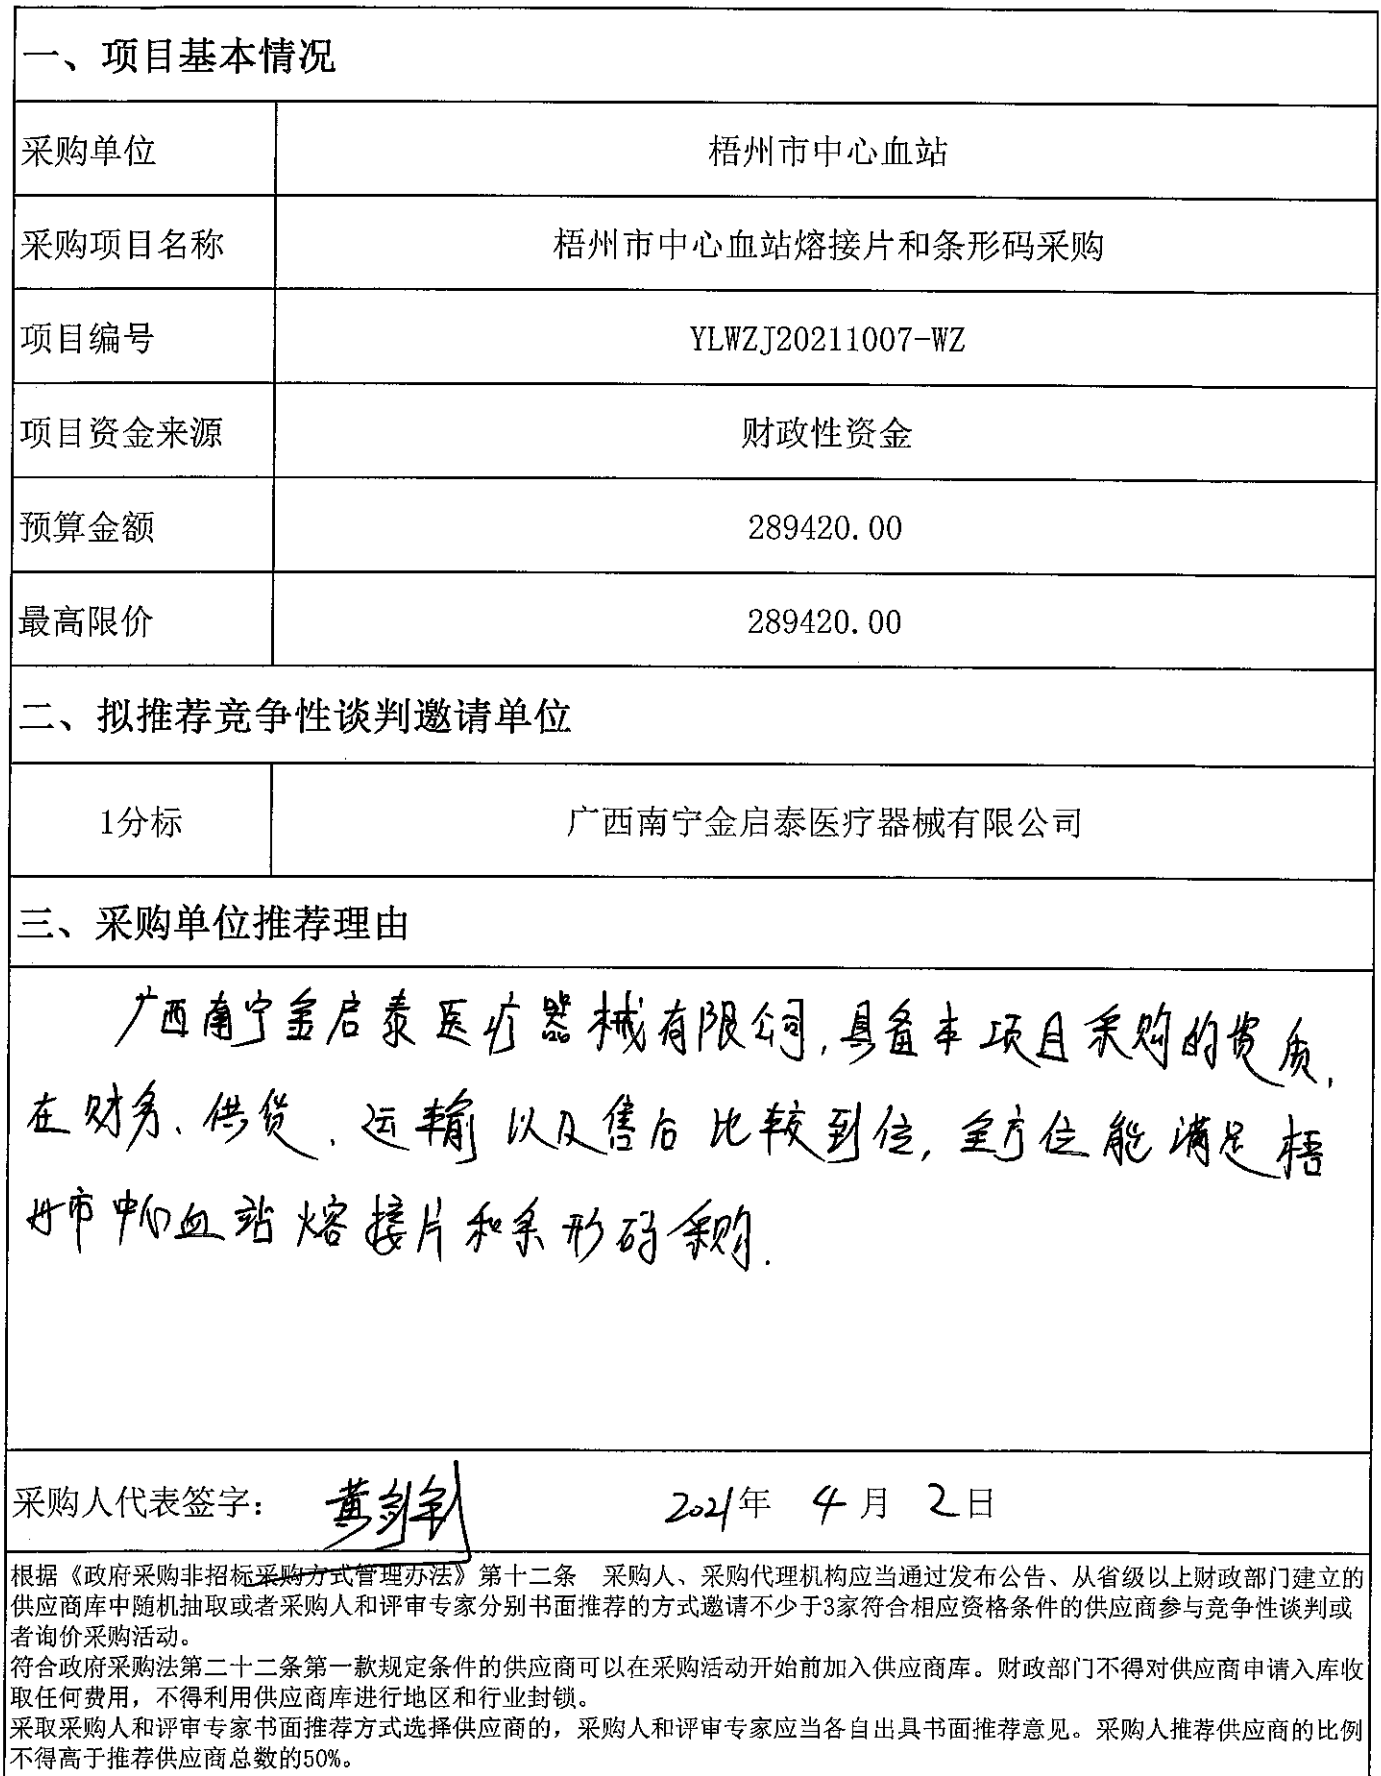 一、项目基本情况
采购单位 梧州市中心血站
采购项目名称 梧州市中心血站熔接片和条形码采购
项目编号 YLWZJ20211007-WZ
项目资金来源 财政性资金
预算金额 289420.00
最高限价 289420.00
二、拟推荐竞争性谈判邀请单位
1分标 广西南宁金启泰医疗器械有限公司
三、采购单位推荐理由
广西南宁金启泰医疗器械有限公司,具备本项目采购的资质,
在财务、供货、运输以及售后比较到位,全方位能满足梧
州市中心血站熔接片和条形码采购.
采购人代表签字: 2021年 4月 2日
根据《政府采购非招标采购方式管理办法》第十二条 采购人、采购代理机构应当通过发布公告、从省级以上财政部门建立的
供应商库中随机抽取或者采购人和评审专家分别书面推荐的方式邀请不少于3家符合相应资格条件的供应商参与竞争性谈判或
者询价采购活动。
符合政府采购法第二十二条第一款规定条件的供应商可以在采购活动开始前加入供应商库。财政部门不得对供应商申请入库收
取任何费用，不得利用供应商库进行地区和行业封锁。
采取采购人和评审专家书面推荐方式选择供应商的，采购人和评审专家应当各自出具书面推荐意见。采购人推荐供应商的比例
不得高于推荐供应商总数的50%。